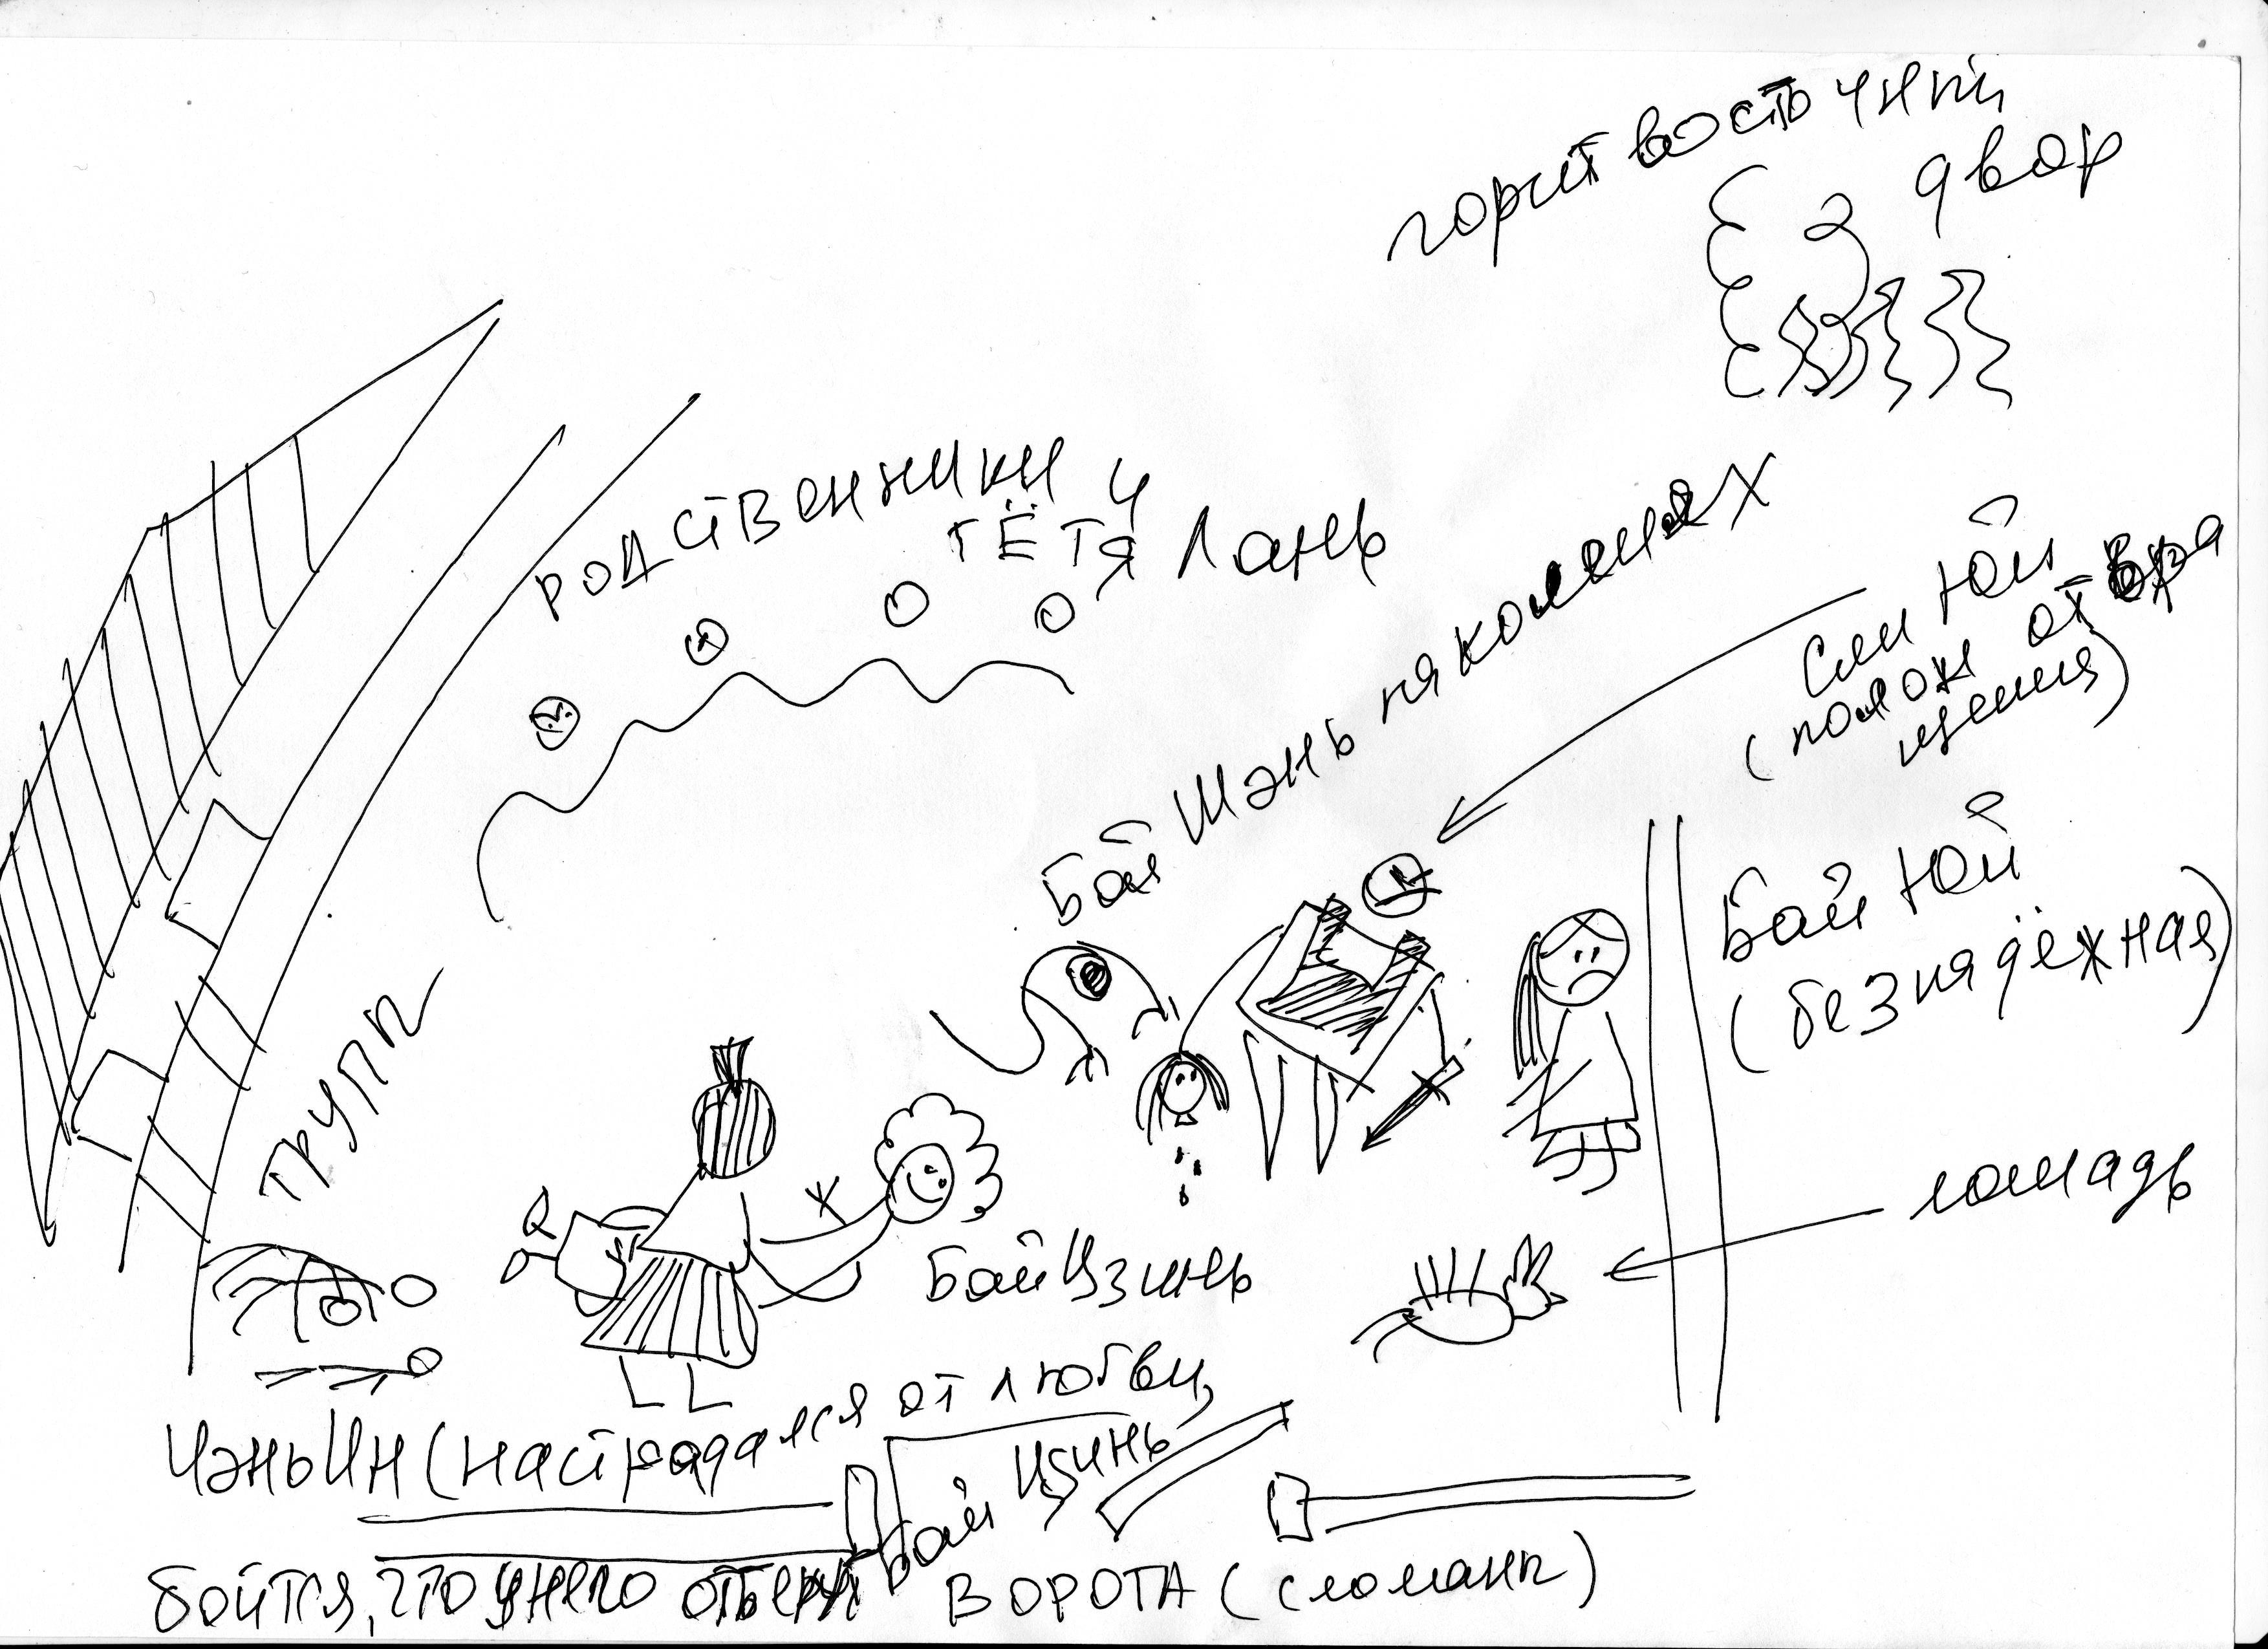 горит восточный
двор
родственники и
тётя Лань
Бай Шэнь на коленях
Сяи Юй
(полож от вра
щения)
Бай Юй
(безнадёжная)
трупы
лошадь
Бай Цзинь
Чэнь Ин (настрадался от любви,
боится, что у него отберут
Бай Цзинь
ворота (сломаны)